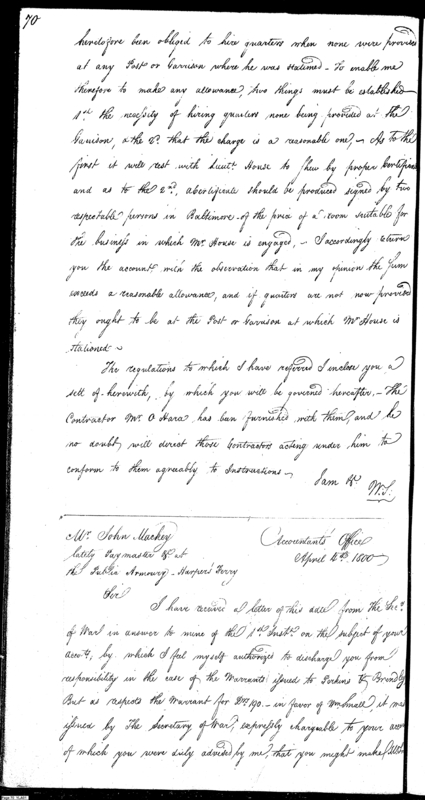 70
heretofore been obliged to hire quarters when none were provided
at any Post or Garrison where he was stationed – To enable me
therefore to make any allowance, two things must be established –
1st the necessity of hiring quarters none being provided at the
Garrison, & the 2d. that the charge is a reasonable one, – As to the
first it will rest with Lieut. House to shew by proper Certificates
and as to the 2nd, a certificate should be produced signed by two
respectable persons in Baltimore of the price of a room suitable for
the business in which Mr. House is engaged, – I accordingly return
you the account with the observation that in my opinion the sum
exceeds a reasonable allowance, and if quarters are not now provided
they ought to be at the Post or Garrison at which Mr House is
stationed –
The regulations to which I have referred I inclose you a
sett of herewith, by which you will be governed hereafter, – The
Contractor Mr. O Hara has been furnished with them, and he
no doubt, will direct those Contractors acting under him to
conform to them agreeably to Instructions –
I am &c.
W.S.
Mr. John Mackey
Accountants Office
lately Paymaster &c at
April 4th. 1800
the Public Armoury – Harper's Ferry
Sir
I have received a letter of this date from The Secy.
of War in answer to mine of the 1st Instt. on the subject of your
Accots, by which I feel myself authorized to discharge you from
responsibility in the case of the Warrants issued to Perkins &
But as respects the Warrant for in favor of Wm Small, it was
issued by The Secretary of War, expressly chargeable to your
of which you were duly advised by me, that you might make